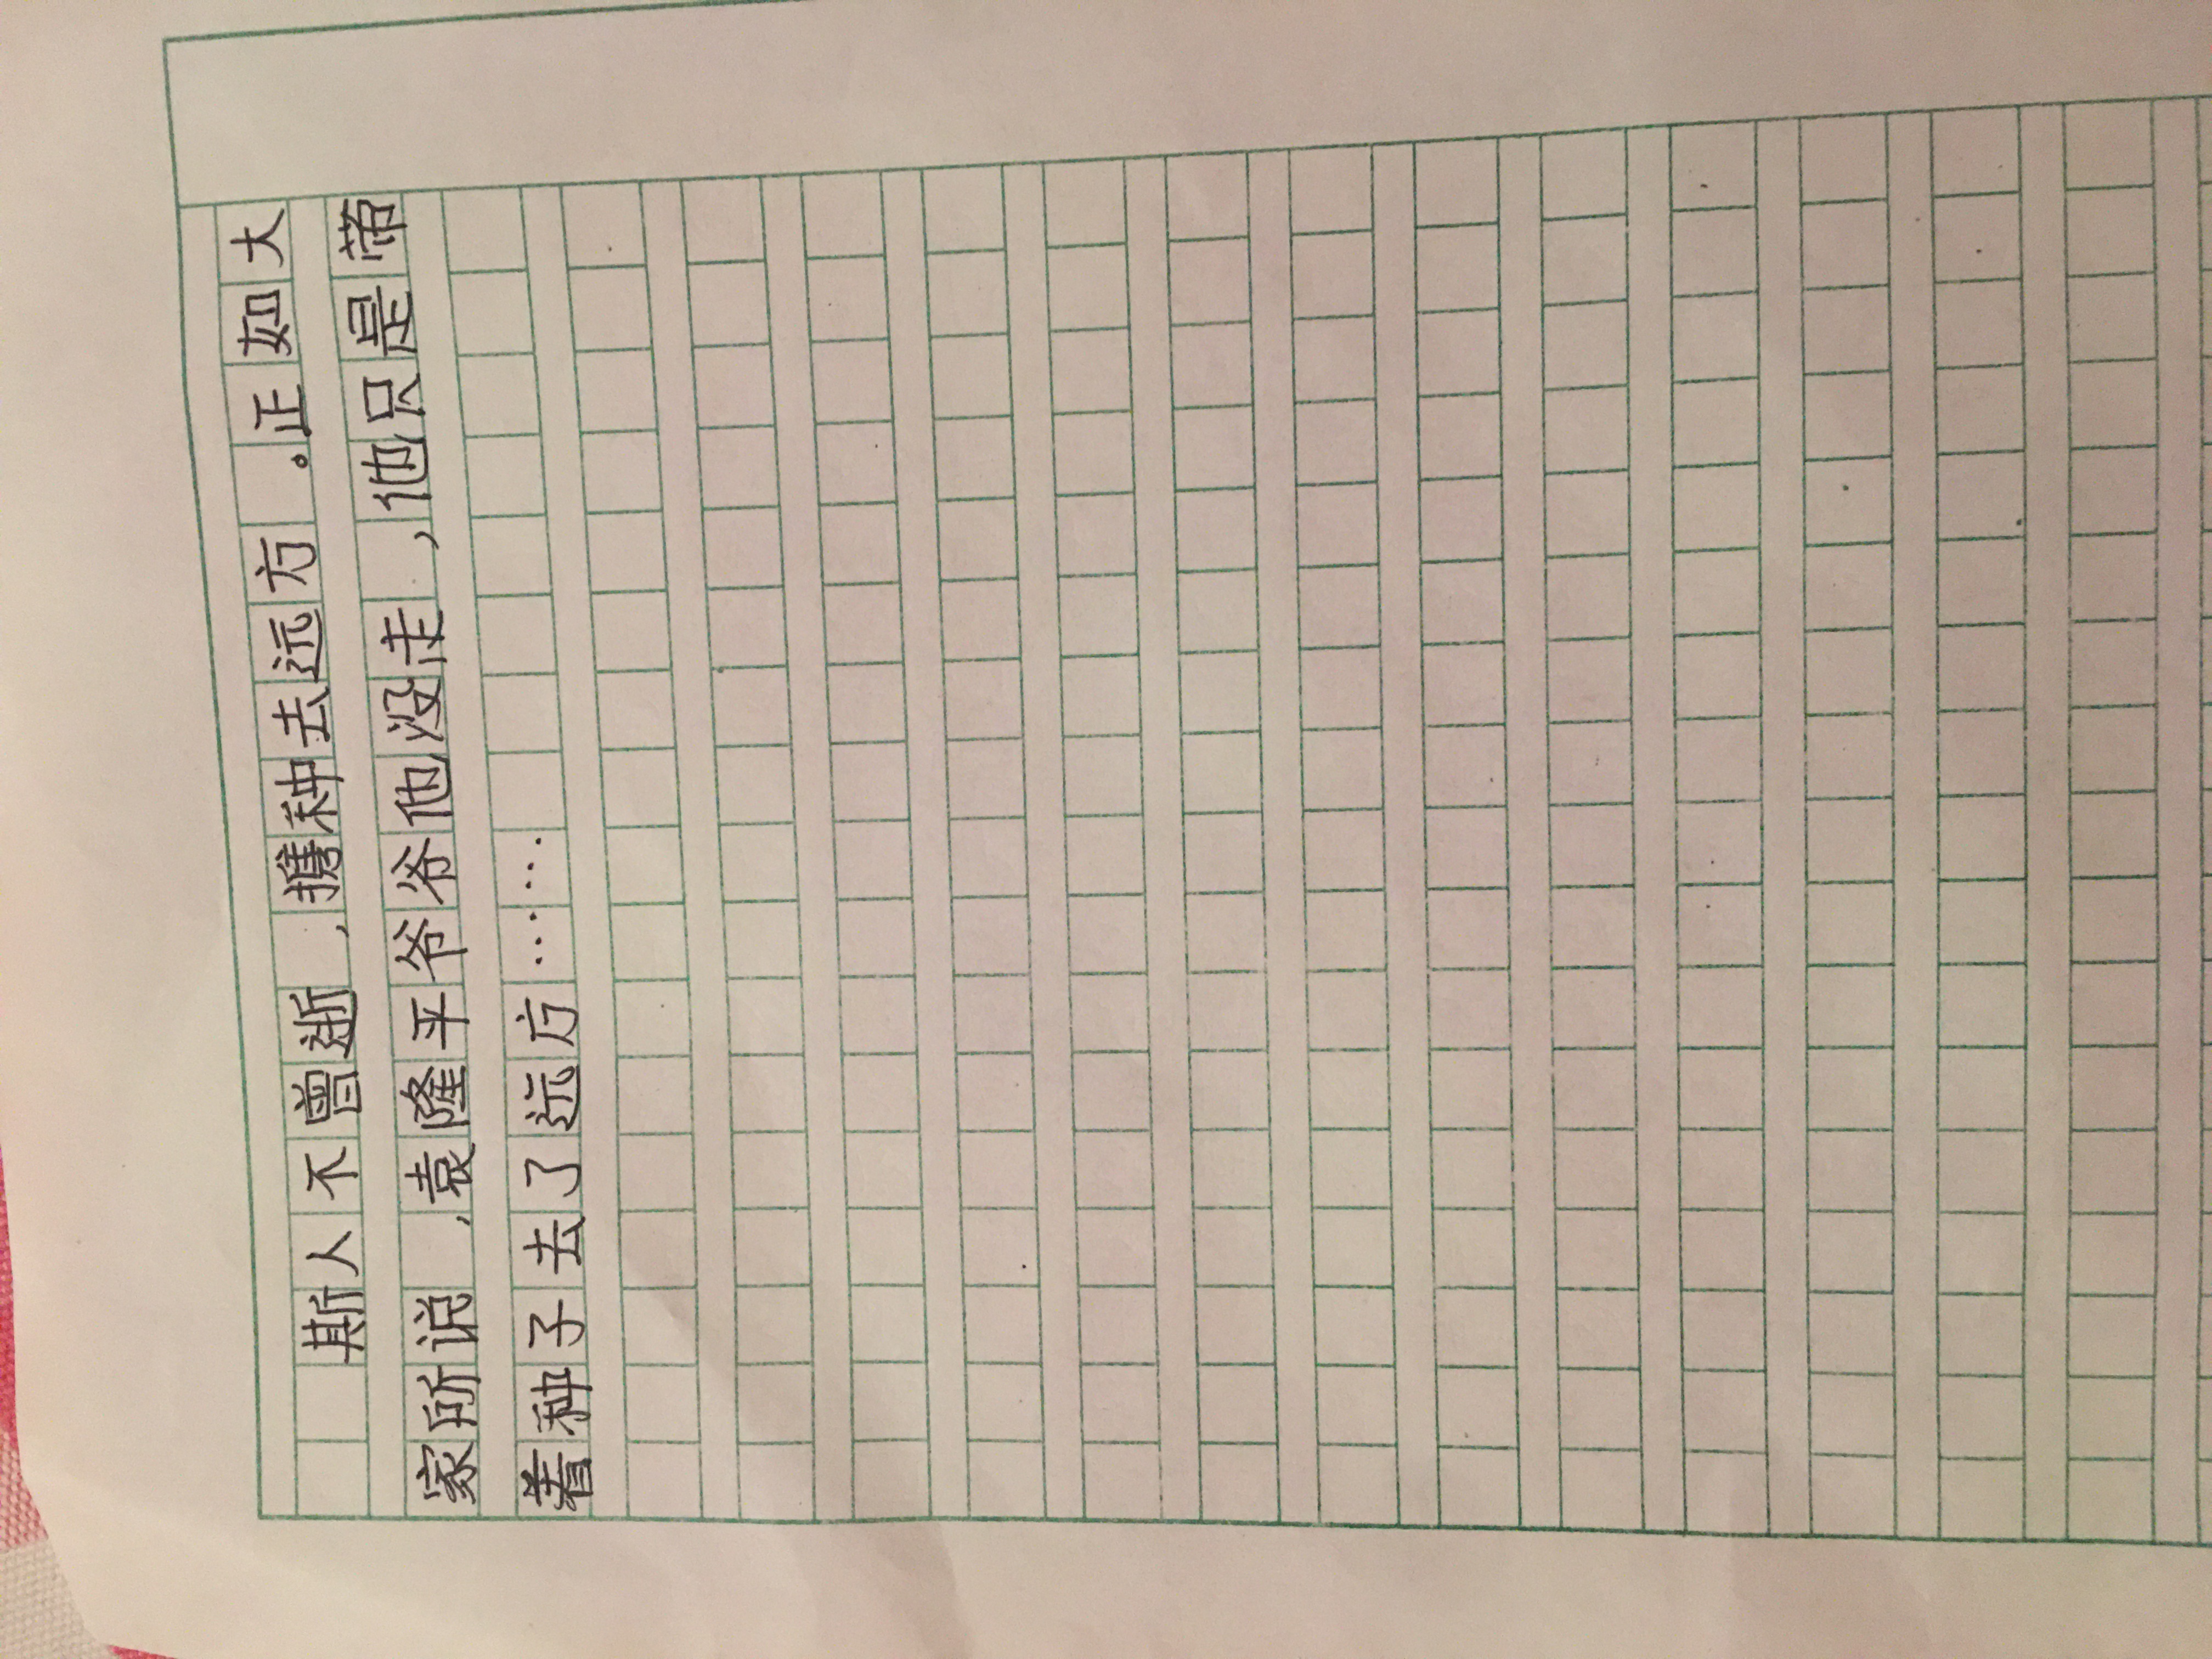 斯人不曾逝,携种去远方。正如大
家所说,袁隆平爷爷他没走,他只是带
着种子去了远方……